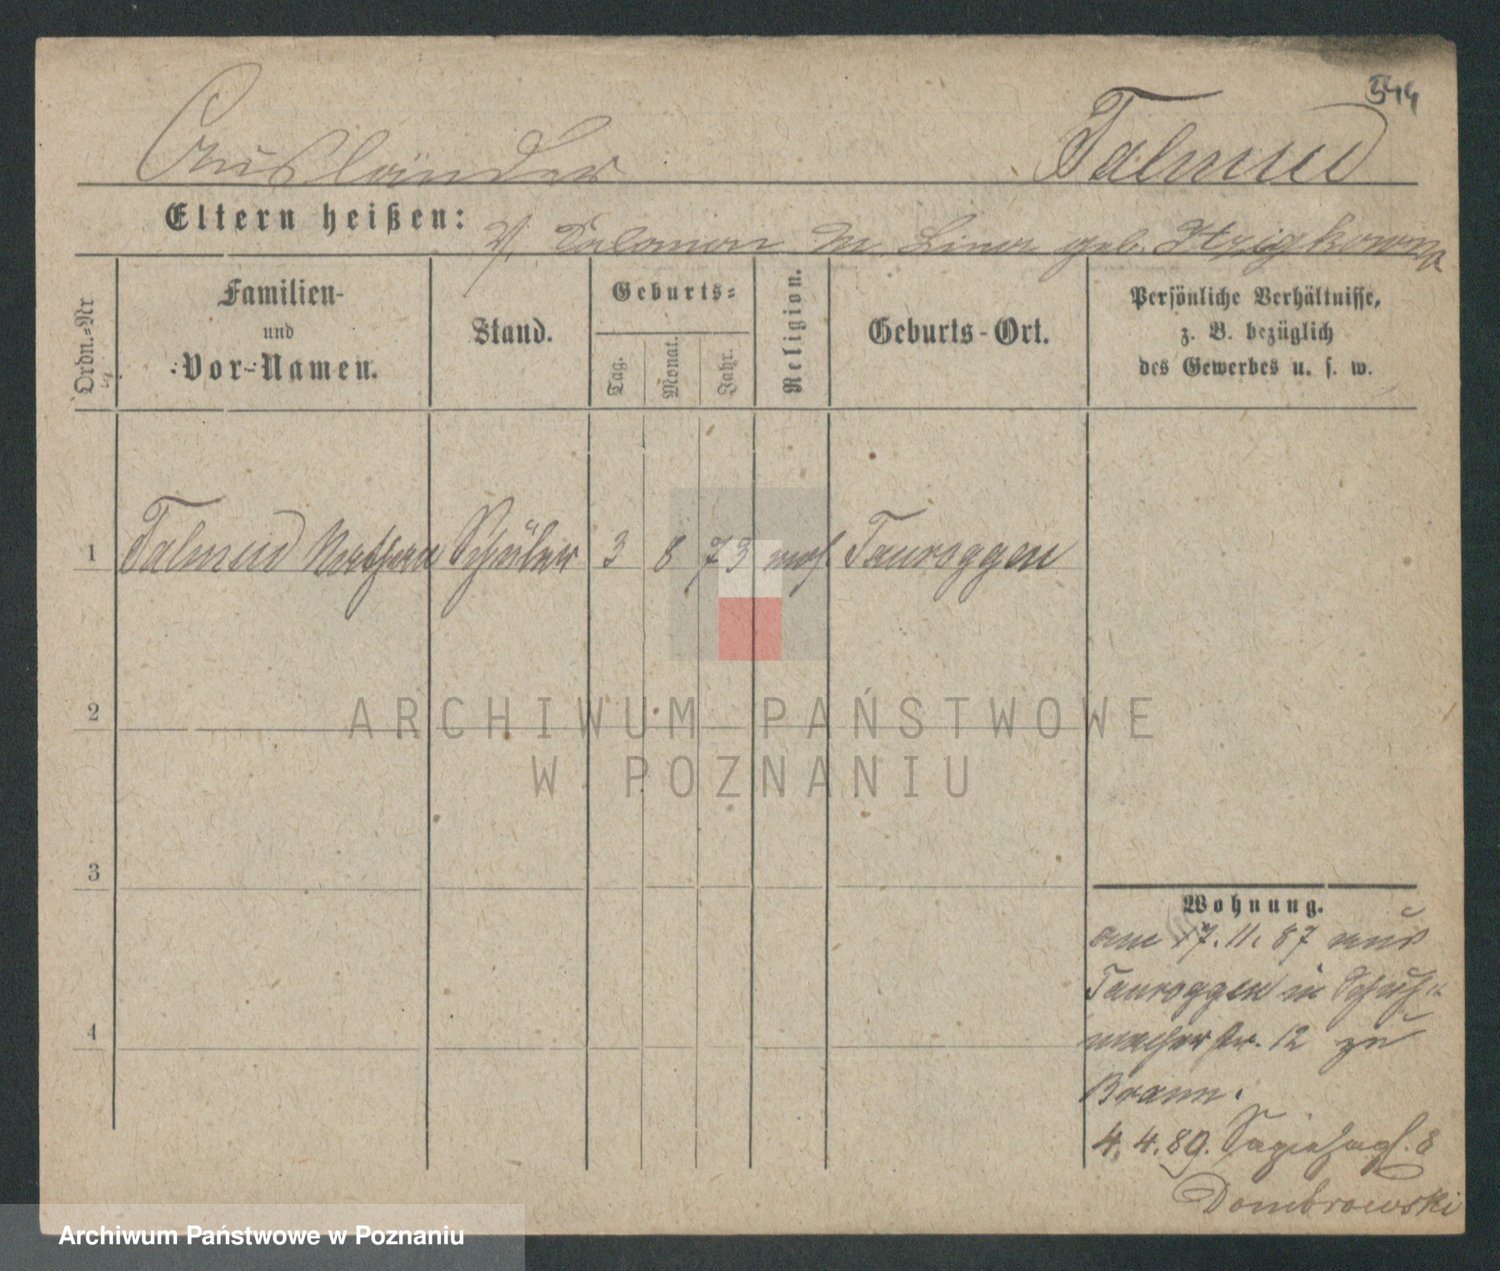 544
Ausländer Talmud
Eltern heißen: V. Salomon M. Lina geb. Itzigkowna
Ordn.-Nr
Familien-
und
Vor-Namen.
Stand.
Geburts-
Tag.
Monat.
Jahr.
Religion.
Geburts-Ort.
Persönliche Verhältnisse,
z. B. bezüglich
des Gewerbes u. s. w.
1 Talmud Nathan Schüler 3 8 73 mos. Tauroggen
2
3
4
Wohnung.
am 17.11.87 aus
Tauroggen in Schuh-
macherstr. 12 zu
Braun.
4.4.89. Sapiehapl. 8
Dombrowski
ARCHIWUM PAŃSTWOWE
W POZNANIU
Archiwum Państwowe w Poznaniu